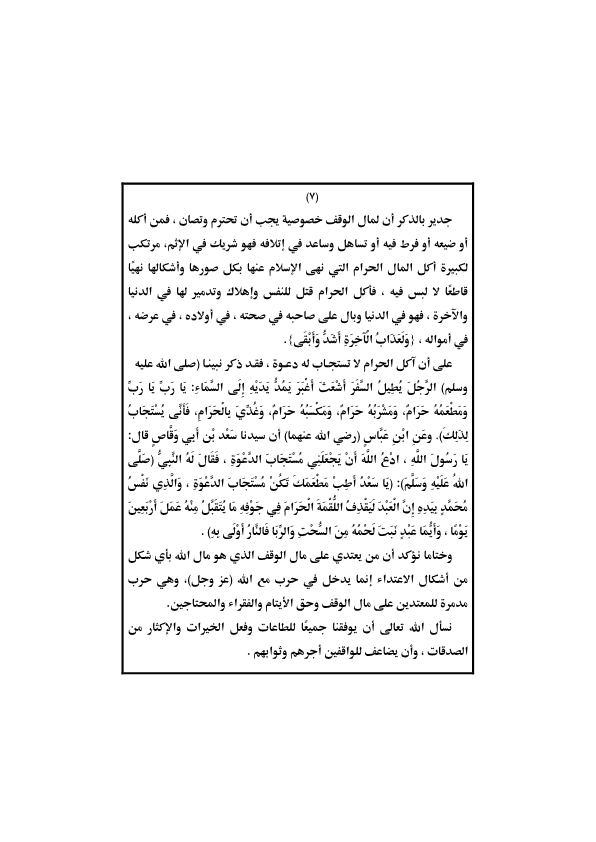 (٧)
جدير بالذكر أن لمال الوقف خصوصية يجب أن تحترم وتصان ، فمن أكله
أو ضيعه أو فرط فيه أو تساهل وساعد في إتلافه فهو شريك في الإثم، مرتكب
لكبيرة أكل المال الحرام التي نهى الإسلام عنها بكل صورها وأشكالها نهيًا
قاطعًا لا لبس فيه ، فأكل الحرام قتل للنفس وإهلاك وتدمير لها في الدنيا
والآخرة ، فهو في الدنيا وبال على صاحبه في صحته ، في أولاده ، في عرضه ،
في أمواله ، {وَلَعَذَابُ الْآخِرَةِ أَشَدُّ وَأَبْقَى}.
على أن آكل الحرام لا تستجاب له دعوة ، فقد ذكر نبينا (صلى الله عليه
وسلم) الرَّجُلَ يُطِيلُ السَّفَرَ أَشْعَثَ أَغْبَرَ يَمُدُّ يَدَيْهِ إِلَى السَّمَاءِ: يَا رَبِّ يَا رَبِّ
وَمَطْعَمُهُ حَرَامٌ، وَمَشْرَبُهُ حَرَامٌ، وَمَكْسَبُهُ حَرَامٌ، وَغُذِّيَ بِالْحَرَامِ، فَأَنَّى يُسْتَجَابُ
لِذَلِكَ). وعَنِ ابْنِ عَبَّاسٍ (رضي الله عنهما) أن سيدنا سَعْد بْن أَبِي وَقَّاصٍ قال:
يَا رَسُولَ اللَّهِ ، ادْعُ اللَّهَ أَنْ يَجْعَلَنِي مُسْتَجَابَ الدَّعْوَةِ ، فَقَالَ لَهُ النَّبِيُّ (صَلَّى
اللهُ عَلَيْهِ وَسَلَّمَ): (يَا سَعْدُ أَطِبْ مَطْعَمَكَ تَكُنْ مُسْتَجَابَ الدَّعْوَةِ ، وَالَّذِي نَفْسُ
مُحَمَّدٍ بِيَدِهِ إِنَّ الْعَبْدَ لَيَقْذِفُ اللُّقْمَةَ الْحَرَامَ فِي جَوْفِهِ مَا يُتَقَبَّلُ مِنْهُ عَمَلَ أَرْبَعِينَ
يَوْمًا ، وَأَيُّمَا عَبْدٍ نَبَتَ لَحْمُهُ مِنَ السُّحْتِ وَالرِّبَا فَالنَّارُ أَوْلَى بِهِ) .
وختاما نؤكد أن من يعتدي على مال الوقف الذي هو مال الله بأي شكل
من أشكال الاعتداء إنما يدخل في حرب مع الله (عز وجل)، وهي حرب
مدمرة للمعتدين على مال الوقف وحق الأيتام والفقراء والمحتاجين.
نسأل الله تعالى أن يوفقنا جميعًا للطاعات وفعل الخيرات والإكثار من
الصدقات ، وأن يضاعف للواقفين أجرهم وثوابهم .